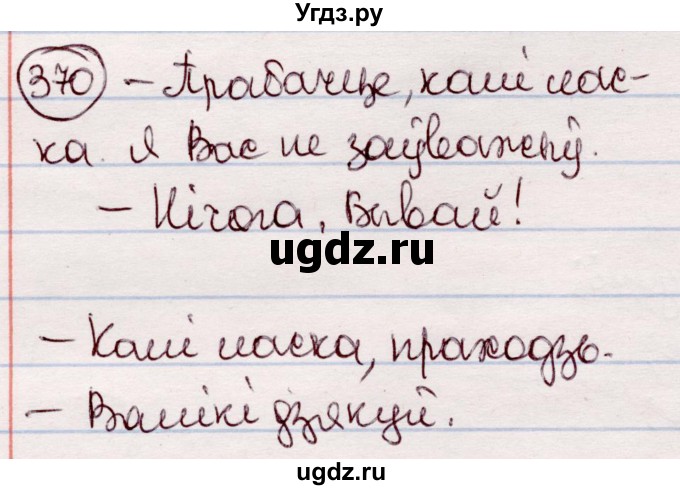 Угдз.ру
370 – Прабачце, калі лас-
ка. я Вас не заўважыў.
– Нічога, Бывай!
ugdz.ru
– Калі ласка, праходзь.
– Вялікі дзякуй.
ugdz.ru